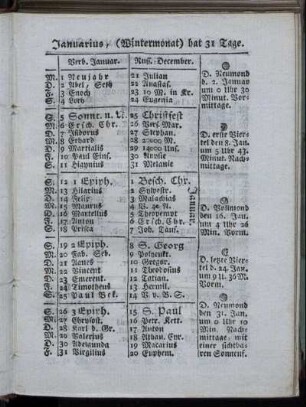 Januarius, (Wintermonat) hat 31 Tage.
Verb. Januar. Ruß. December.
M. 1 Neujahr 21 Julian
D. 2 Abel, Seth 22 Anastas.
F. 3 Enoch 23 10 M. in Kr.
S. 4 24 Eugenia
S. 5 Sonne. n. 25 Christfest
M. 6 Ersch. Chr. 26 Mar.
D. 7 Isidorus 27 Stephan.
M. 8 Erhard 28
D. 9 Martialis 29 14000 Uns.
F. 10 Paul Eins. 30
S. 11 31 Melanie
S. 12 1 Epiph. 1 Besch. Chr.
M. 13 Hilarius 2 Sylvester.
D. 14 Felix 3 Malachias
M. 15 Maurus 4
D. 16 Marcellus 5 Theopempt
F. 17 Anton 6 Ersch. Chr.
S. 18 Prisca 7 Joh. Täuf.
Januar
S. 19 2 Epiph. 8 S. Georg
M. 20 Fab. Seb. 9 Polyeukt.
D. 21 Agnes 10 Gregor.
M. 22 Vincent 11 Theodosius
D. 23 Emerent. 12 Tatian.
F. 24 Timotheus 13 Hermil.
S. 25 Paul Bek. 14 V. v. B. S.
S. 26 3 Epiph. 15 S. Paul
M. 27 Chrysost. 16 Petr. Kett.
D. 28 Karl d. Gr. 17 Anton
M. 29 Valerius 18 Athan. Cyr.
D. 30 Adelgunda 19 Macarius
F. 31 Virgilius 20 Euphem.
D. Neumond
d. 2. Januar
um 0 Uhr 30
Minut. Vor-
mittage.
D. erste Vier-
tel den 8. Jan.
um 5 Uhr 43.
Minut. Nach-
mittage.
D. Vollmond
den 16. Jan.
um 4 Uhr 26
Min. Vorm.
D. letzte Vier-
tel d. 24. Jan.
um 9 U. 36 M.
Vorm.
D. Neumond
den 31. Jan.
um 0 Uhr 10
Min. Nach-
mittage, mit
einer sichtba-
ren Sonnenf.